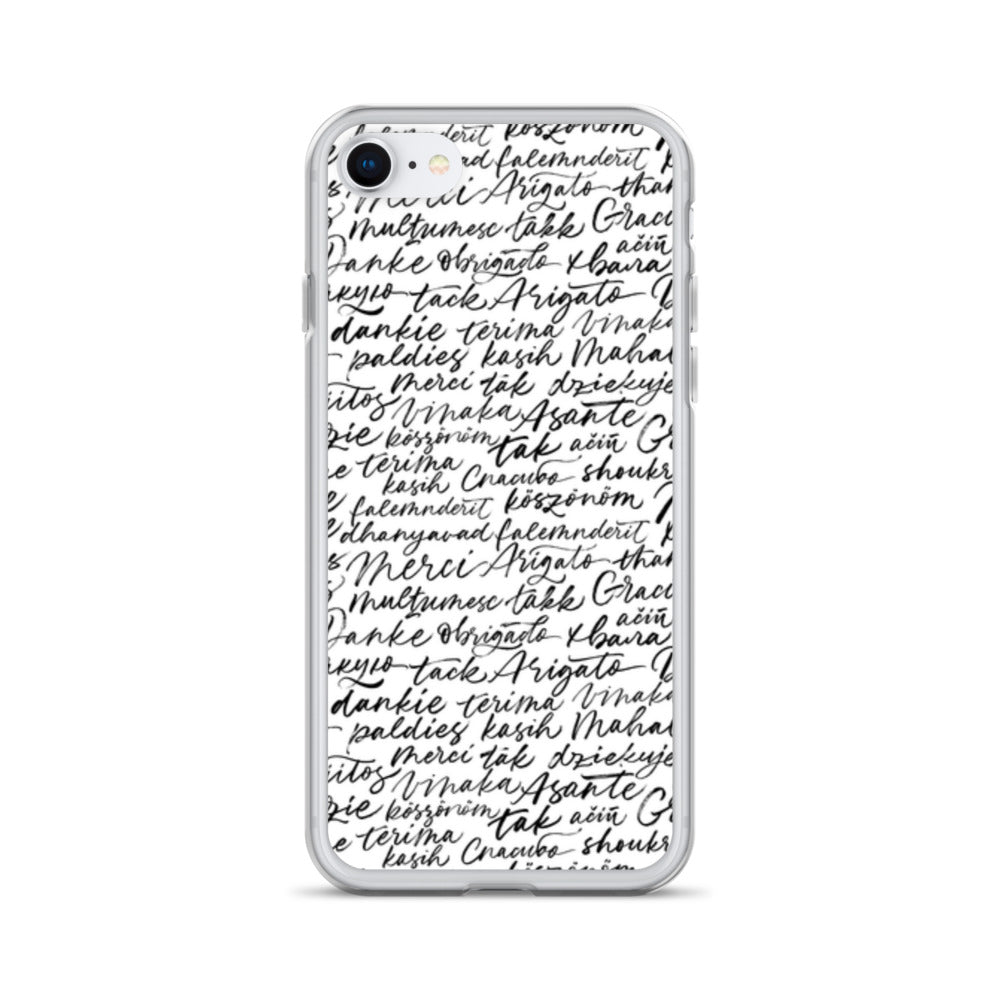 falemnderit köszönöm
falemnderit
Merci Arigato than
multumesc takk Graci
ačiū
Danke obrigado хвала
якую tack Arigato D
dankie terima vinaka
paldies kasih Mahal
merci tāk dziekuje
iitos vinaka Asante
zie köszönöm tak ačiū Gr
e terima
kasih Спасибо shoukr
falemnderit köszönöm
dhanyavad falemnderit
s Merci Arigato than
multumesc takk Graci
ačiū
Danke obrigado хвала
якую tack Arigato D
dankie terima vinaka
paldies kasih Mahal
merci tāk dziekuje
iitos vinaka Asante
zie köszönöm tak ačiū Gr
e terima
kasih Спасибо shoukr
köszönöm